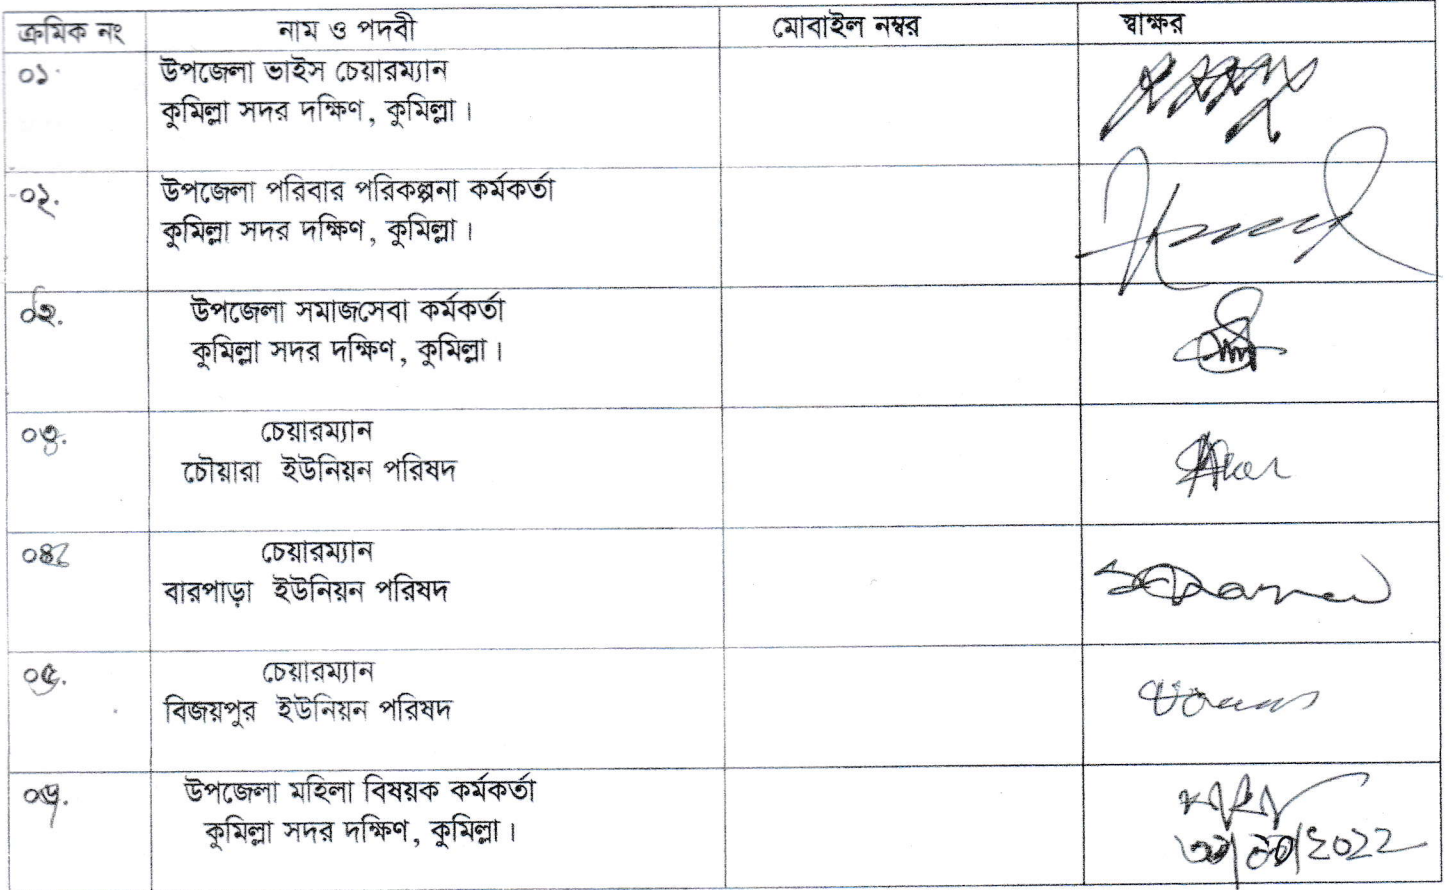 ক্রমিক নং নাম ও পদবী মোবাইল নম্বর স্বাক্ষর
০১ উপজেলা ভাইস চেয়ারম্যান
কুমিল্লা সদর দক্ষিণ, কুমিল্লা।
০২. উপজেলা পরিবার পরিকল্পনা কর্মকর্তা
কুমিল্লা সদর দক্ষিণ, কুমিল্লা।
উপজেলা সমাজসেবা কর্মকর্তা
কুমিল্লা সদর দক্ষিণ, কুমিল্লা।
চেয়ারম্যান
চৌয়ারা ইউনিয়ন পরিষদ
চেয়ারম্যান
বারপাড়া ইউনিয়ন পরিষদ
চেয়ারম্যান
বিজয়পুর ইউনিয়ন পরিষদ
উপজেলা মহিলা বিষয়ক কর্মকর্তা
কুমিল্লা সদর দক্ষিণ, কুমিল্লা।